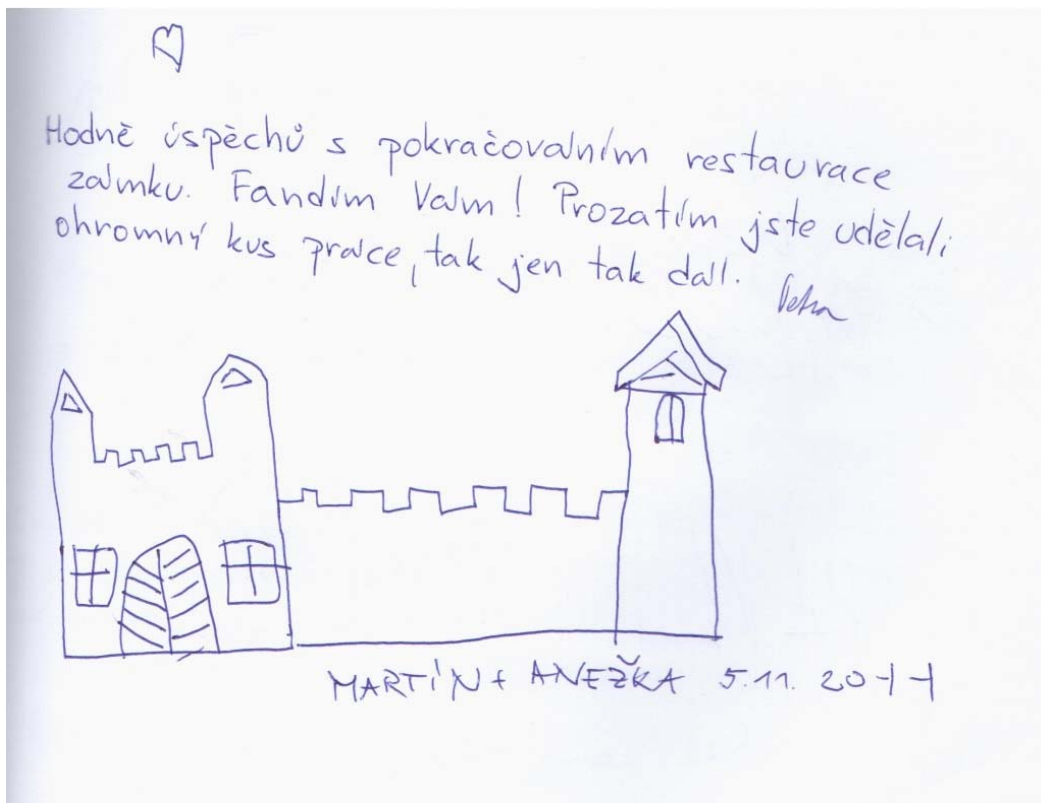 Hodně úspěchů s pokračováním restaurace
zámku. Fandím Vám! Prozatím jste udělali
ohromný kus práce, tak jen tak dál.
Petra
MARTÍN + ANEŽKA 5.11. 2011